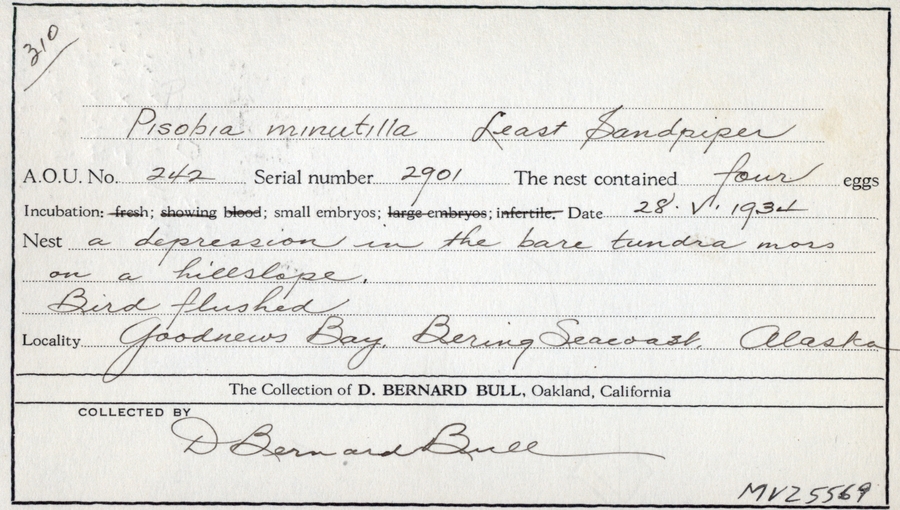 310
Pisobia minutilla Least Sandpiper
A.O.U. No. 242 Serial number 2901 The nest contained four eggs
Incubation: fresh; showing blood; small embryos; large embryos; infertile. Date 28. V. 1934
Nest a depression in the bare tundra moss
on a hillslope.
Bird flushed
Locality Goodnews Bay, Bering Seacoast, Alaska
The Collection of D. BERNARD BULL, Oakland, California
COLLECTED BY
D Bernard Bull
MVZ 5569